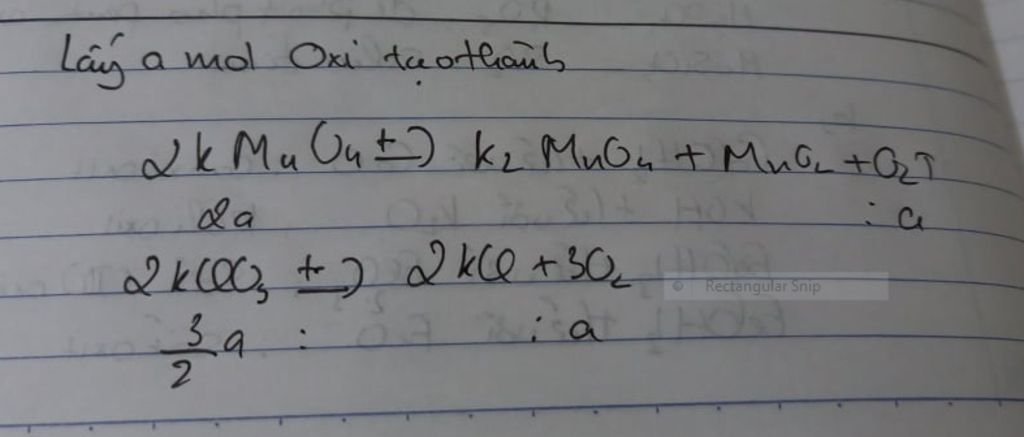 Lấy a mol Oxi tạo thành
2KMnO4 t→ K2MnO4 + MnO2 + O2↑
2a : a
2KClO3 t→ 2KCl + 3O2
Rectangular Snip
3/2 a : : a